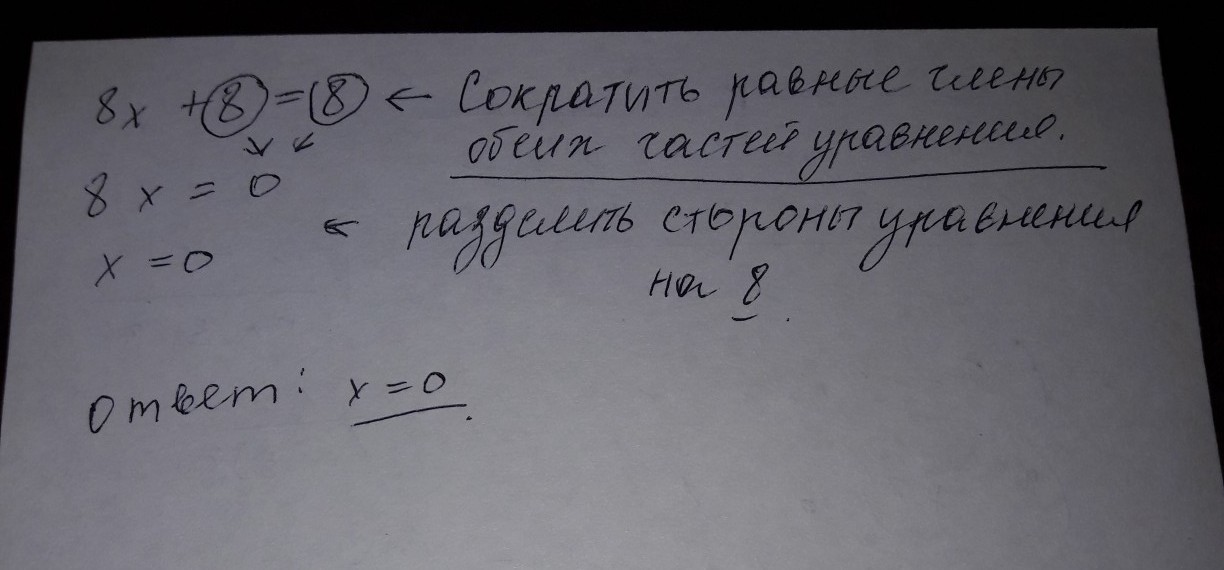 8x + 8 = 8 ← Сократить равные члены
обеих частей уравнения.
8x = 0
← разделить стороны уравнения
x = 0
на 8.
Ответ: x = 0.